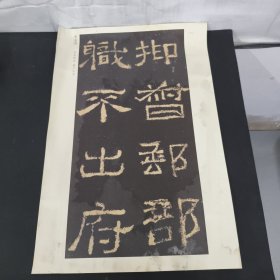 抑督郵部
職不出府